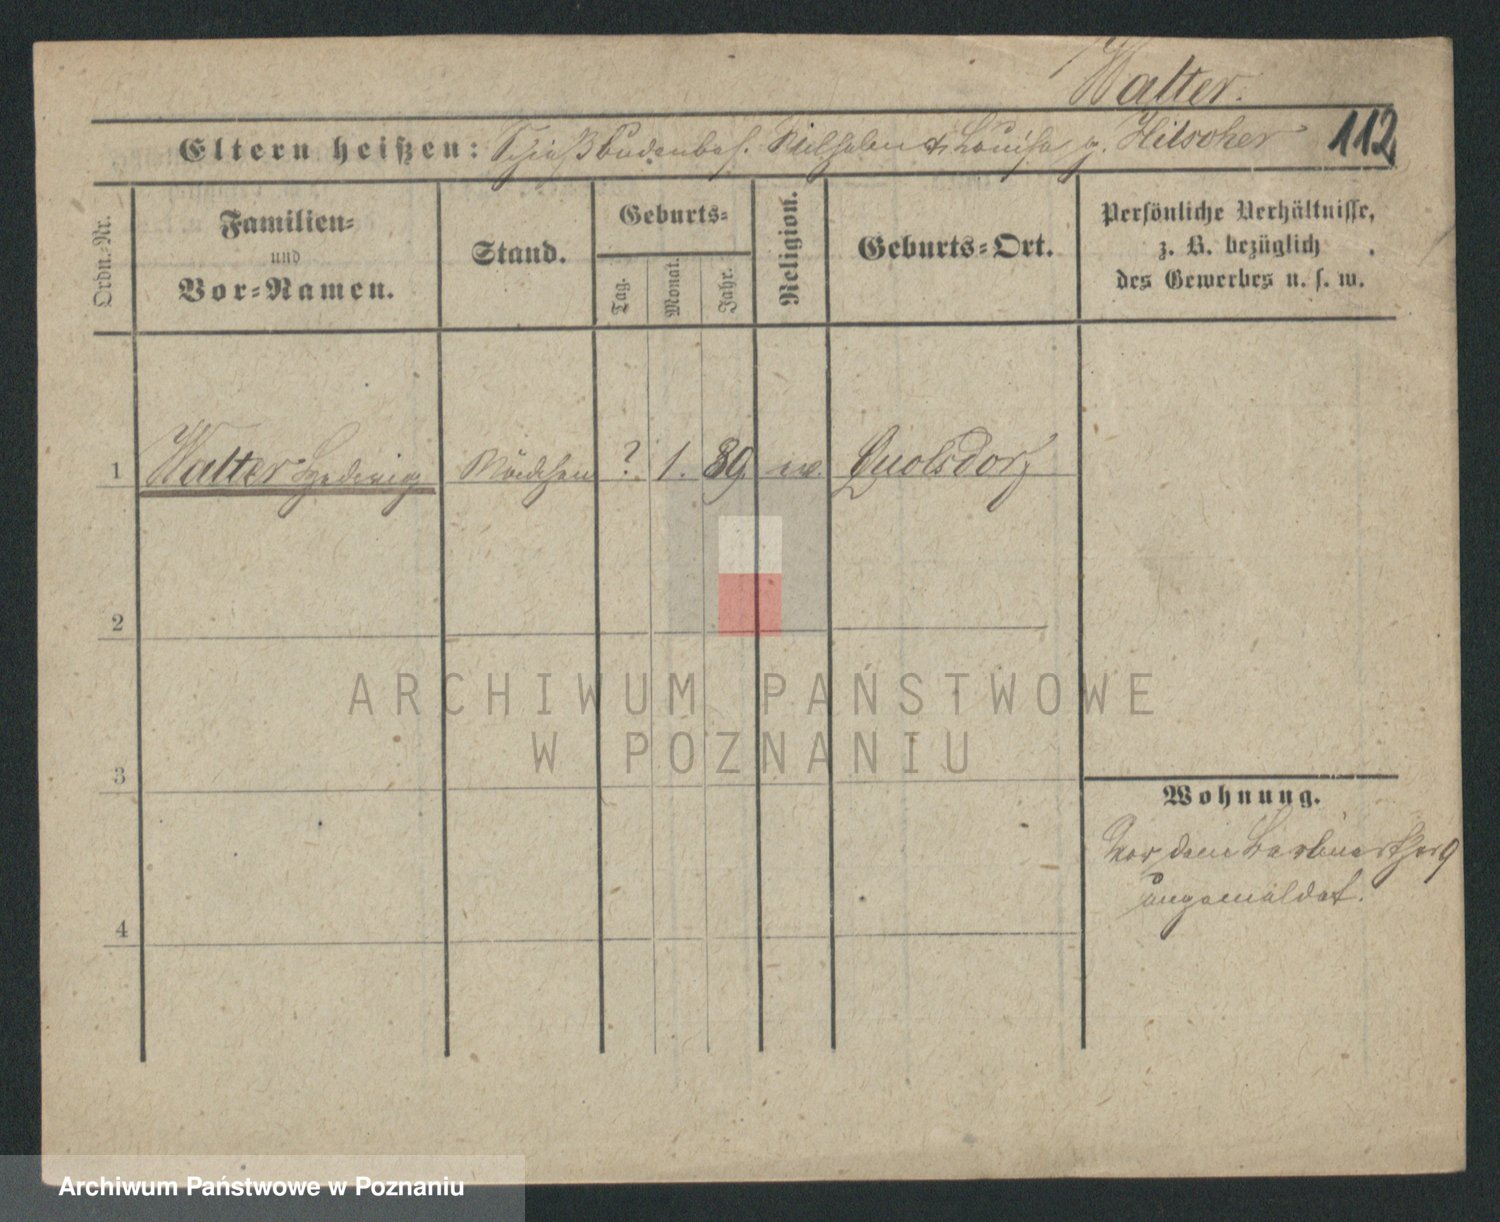 Walter.
Eltern heißen: Schießbudenbes. Wilhelm & Louise g. Hilscher
112
Ordn.-Nr.
Familien-
und
Vor-Namen.
Stand.
Geburts-
Tag.
Monat.
Jahr.
Religion.
Geburts-Ort.
Persönliche Verhältnisse,
z. B. bezüglich
des Gewerbes u. s. w.
1 Walter Hedwig Mädchen ? 1. 89. ev. Quolsdorf
2
3
4
Wohnung.
Vor dem Berliner Thor 9
angemeldet.
ARCHIWUM PAŃSTWOWE
W POZNANIU
Archiwum Państwowe w Poznaniu